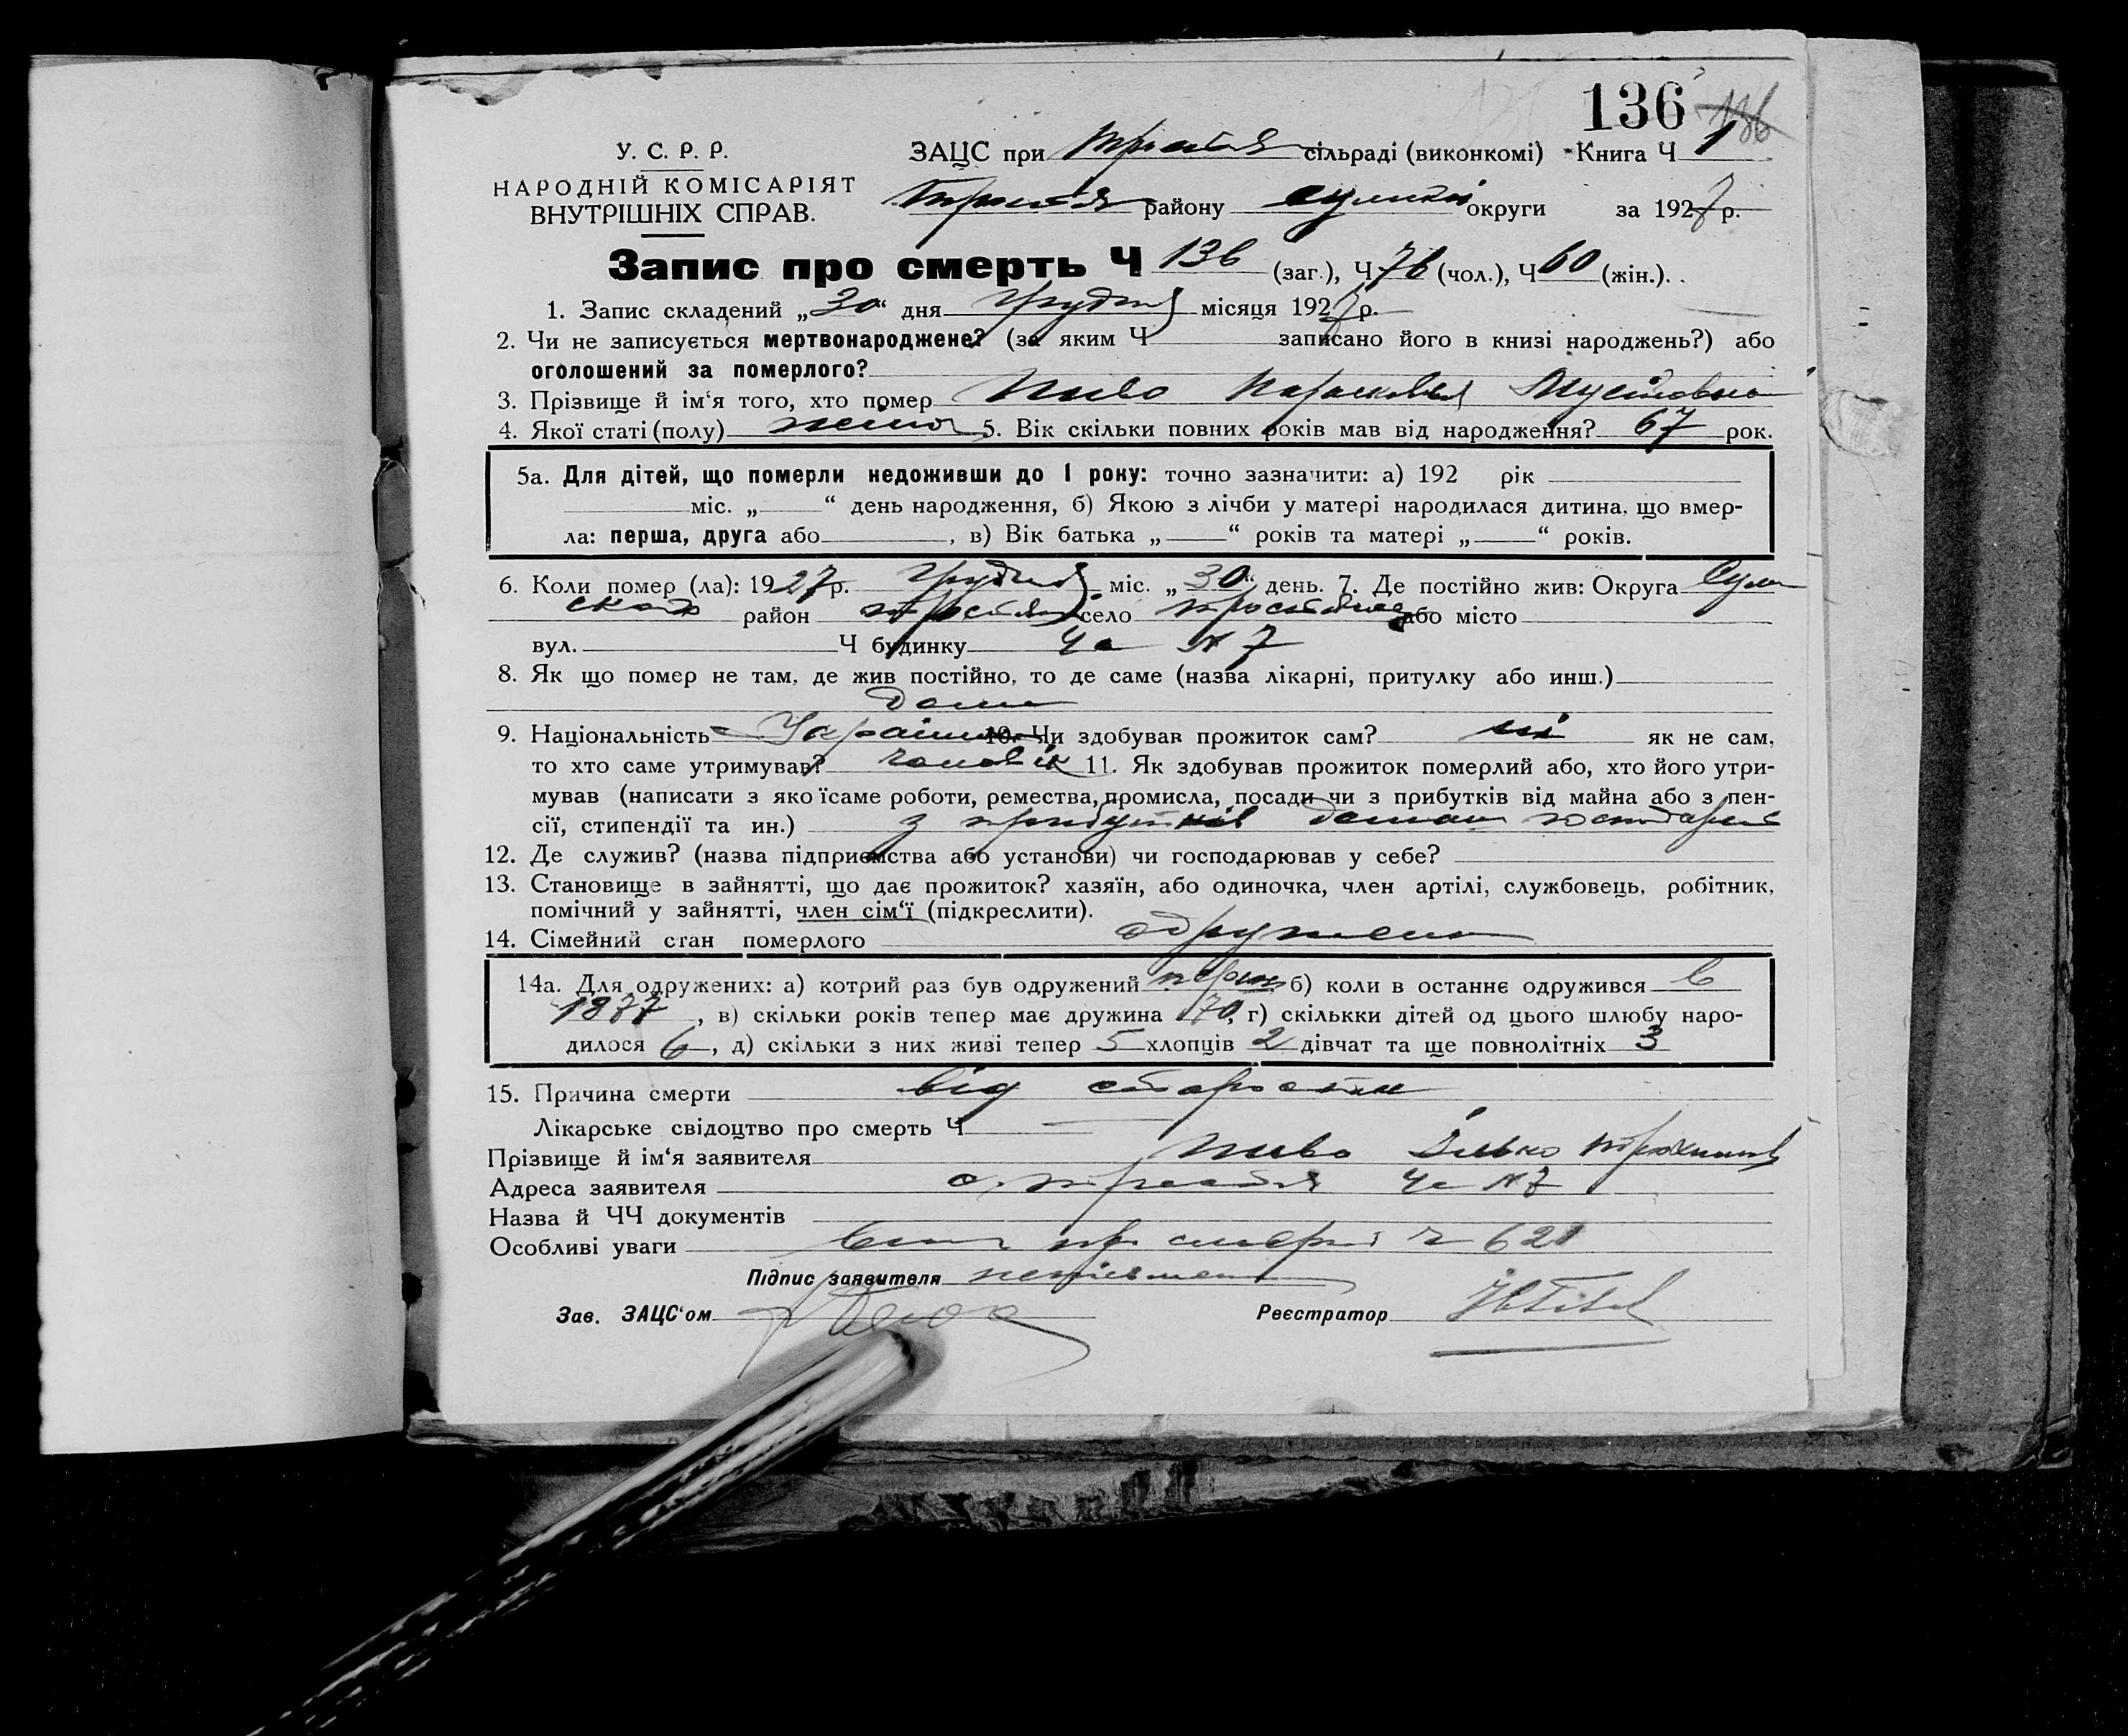 136 136
У. С. Р. Р.
НАРОДНІЙ КОМІСАРІЯТ
ВНУТРІШНІХ СПРАВ.
ЗАЦС при сільраді (виконкомі) Книга Ч 1
району округи за 1927 р.
Запис про смерть Ч 136 (заг.), Ч 76 (чол.), Ч 60 (жін.).
1. Запис складений „30“ дня грудня місяця 1927 р.
2. Чи не записується мертвонароджене? (за яким Ч записано його в книзі народжень?) або
оголошений за померлого?
3. Прізвище й ім‘я того, хто помер Пиво
4. Якої статі (полу) жіноч 5. Вік скільки повних років мав від народження? 67 рок.
5а. Для дітей, що померли недоживши до 1 року: точно зазначити: а) 192 рік
міс. „ “ день народження, б) Якою з лічби у матері народилася дитина, що вмер-
ла: перша, друга або , в) Вік батька „ “ років та матері „ “ років.
6. Коли помер (ла): 1927 р. грудня міс. „30“ день. 7. Де постійно жив: Округа Сум
ская район село або місто
вул. Ч будинку № 7
8. Як що помер не там, де жив постійно, то де саме (назва лікарні, притулку або инш.)
дома
9. Національність 10. Чи здобував прожиток сам? ні як не сам,
то хто саме утримував? чоловік 11. Як здобував прожиток померлий або, хто його утри-
мував (написати з якоїсаме роботи, ремества, промисла, посади чи з прибутків від майна або з пен-
сії, стипендії та ин.) з прибутків
12. Де служив? (назва підприємства або установи) чи господарював у себе?
13. Становище в зайнятті, що дає прожиток? хазяїн, або одиночка, член артілі, службовець, робітник,
помічний у зайнятті, член сім‘ї (підкреслити).
14. Сімейний стан померлого одружена
14а. Для одружених: а) котрий раз був одружений перш б) коли в останнє одружився в
1877, в) скільки років тепер має дружина 70, г) скількки дітей од цього шлюбу наро-
дилося 6, д) скільки з них живі тепер 5 хлопців 2 дівчат та ще повнолітніх 3
15. Причина смерти від старости
Лікарське свідоцтво про смерть Ч
Прізвище й ім‘я заявителя Пиво
Адреса заявителя с. № 7
Назва й ЧЧ документів
Особливі уваги ч 621
Підпис заявителя неписьмен
Зав. ЗАЦС‘ом Реєстратор